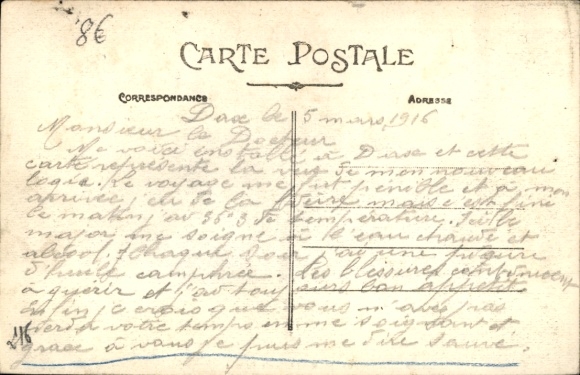 8€
CARTE POSTALE
CORRESPONDANCE
ADRESSE
Dax le 5 mars 1916
Monsieur le Docteur
Me voici installé à Dax et cette
carte représente la rue de mon nouveau
logis. Le voyage me fut pénible et à mon
arrivée, eu de la fièvre mais c'est fini
le matin j'av 36°3 de température. Ici le
major me soigne à l'eau chaude et
alcool. Chaque soir j'ai une piqure
d'huile camphrée. Les blessures continuent
à guérir et j'ai toujours bon appétit.
Enfin je crois que vous n'avez pas
perdu votre temps en me soignant et
grace à vous je puis me dire sauvé.
216